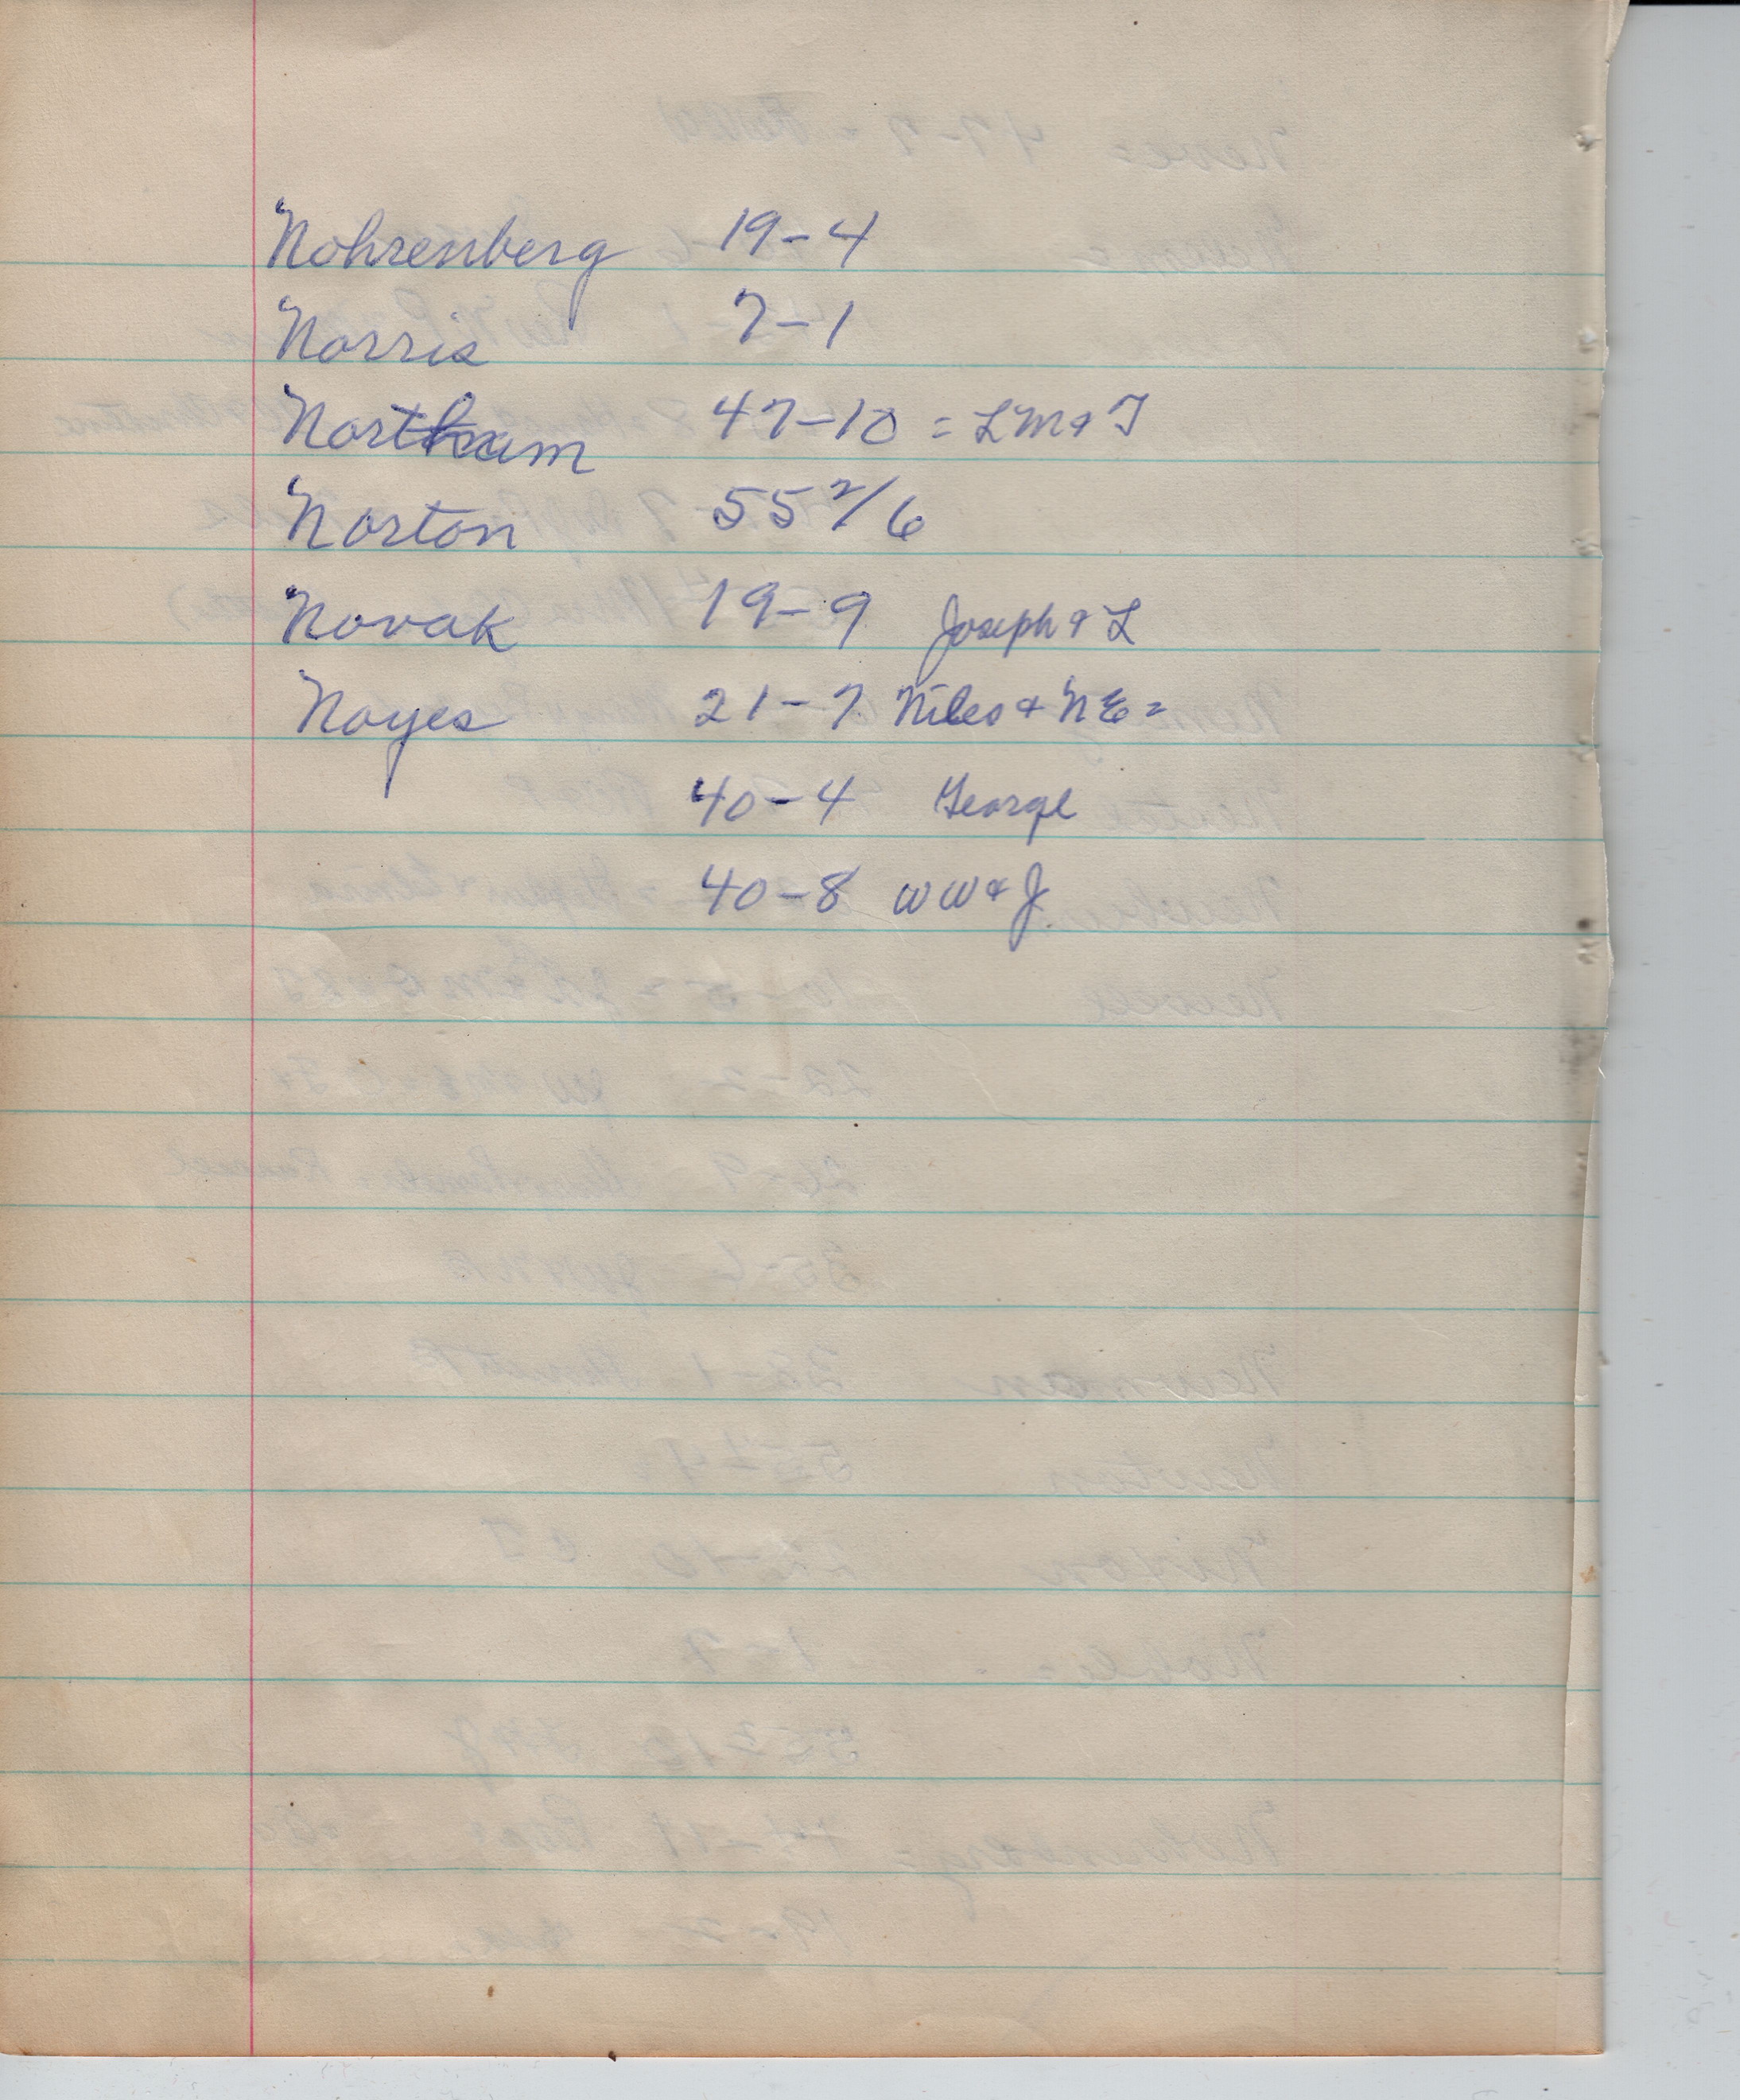 Nohrenberg 19-4
Norris 7-1
Northam 47-10 = LM & T
Norton 55 2/6
Novak 19-9 Joseph & L
Noyes 21-7 Niles & NE =
40-4 George
40-8 WW & J.